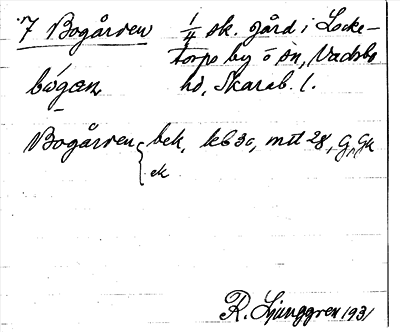 7 Bogården 1/4 sk. gård i Locke-
torps by o sn, Vadsbo
bógæn hd, Skarab. l.
Bogården { bek, kb 3a, mtl 28, G, Gk
ek
R. Ljunggren 1931